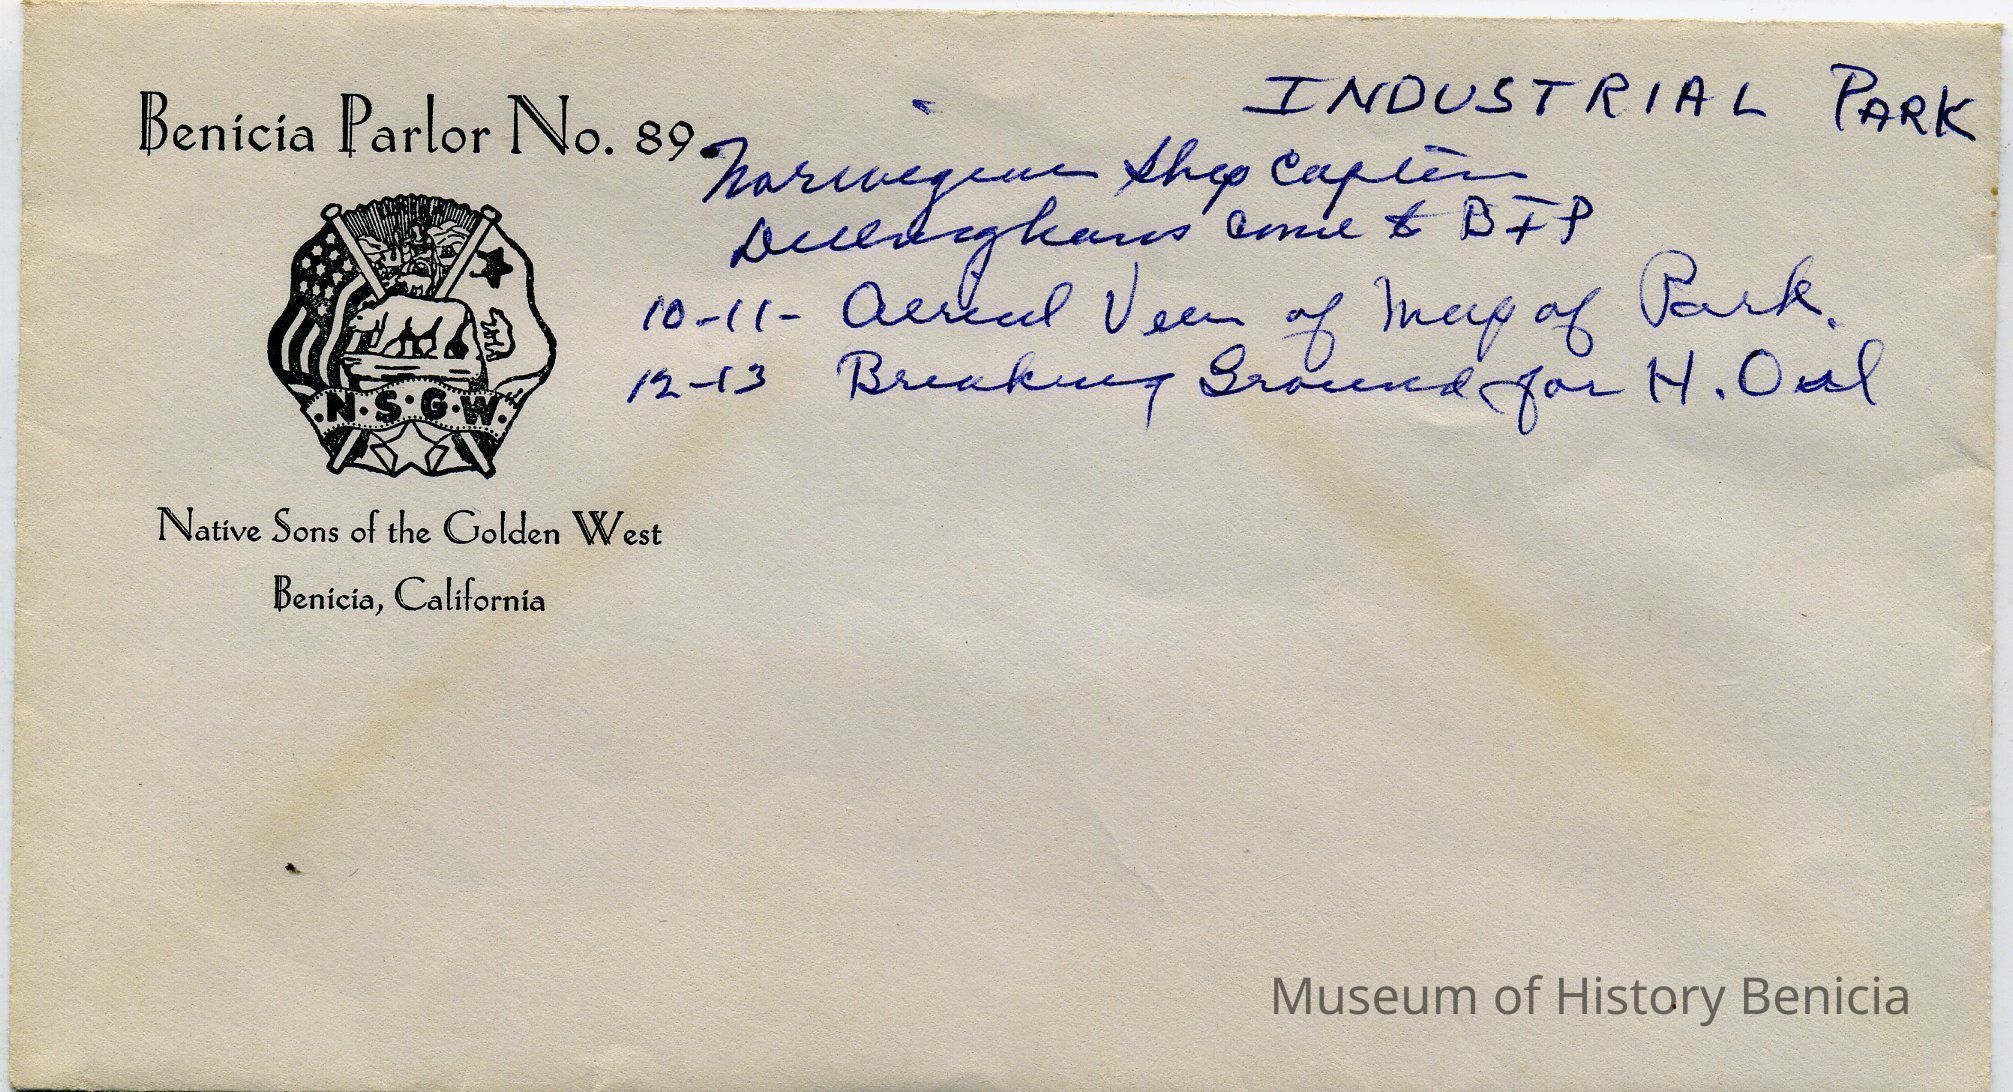 Benicia Parlor No. 89
N.S.G.W.
Native Sons of the Golden West
Benicia, California
INDUSTRIAL PARK
Norwegian Ship Captin
Dillinghams come to BIP
10-11- Aerial View of Map of Park.
12-13 Breaking Ground for H. Oil
Museum of History Benicia